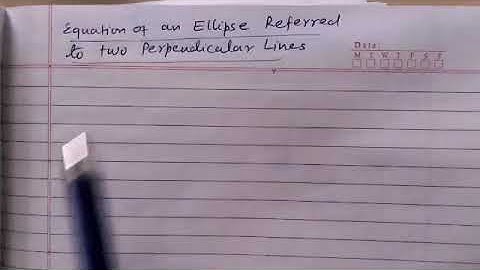 Equation of an Ellipse Referred
to two Perpendicular Lines
Date:
M T W T F S S